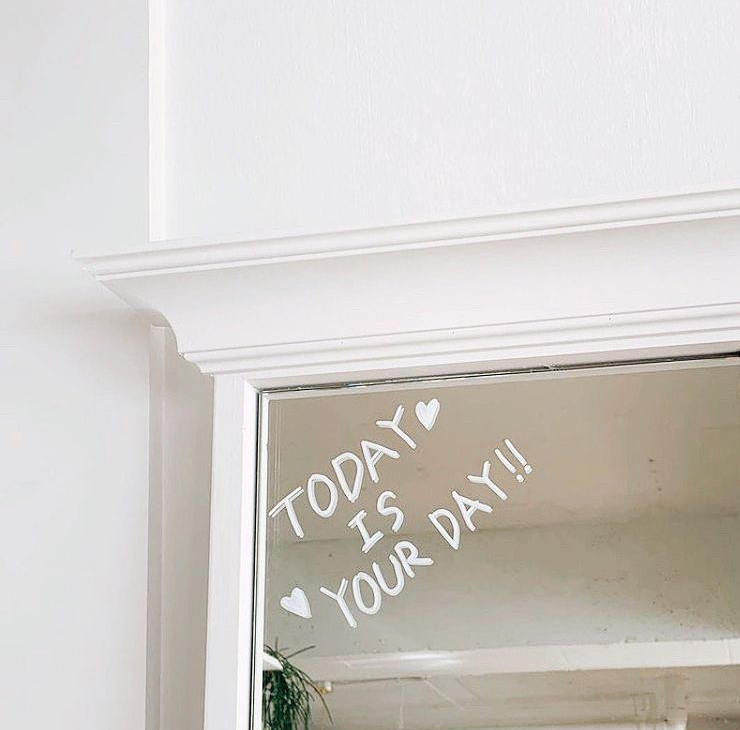 TODAY♥
IS
♥ YOUR DAY!!